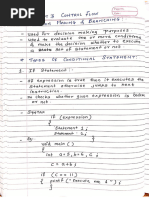 3 CONTROL FLOW
Making & Branching :
- Used for decision making purposes
- Used to evaluate one or more conditions
& takes the decision whether to execute
set of statement or not
* TYPES OF CONDITIONAL STATEMENT:
1. If Statement :
- If expression is true then it executes the
statement otherwise jumps to next
- It checks whether given expression is Boolean
or not
- Syntax
if (expression)
{
Statement 1 ;
Statement 2 ;
}
Ex. void main ( )
{
int a=5, b=6, c ;
c = a + b ;
if (c == 11)
{
printf ("Decision